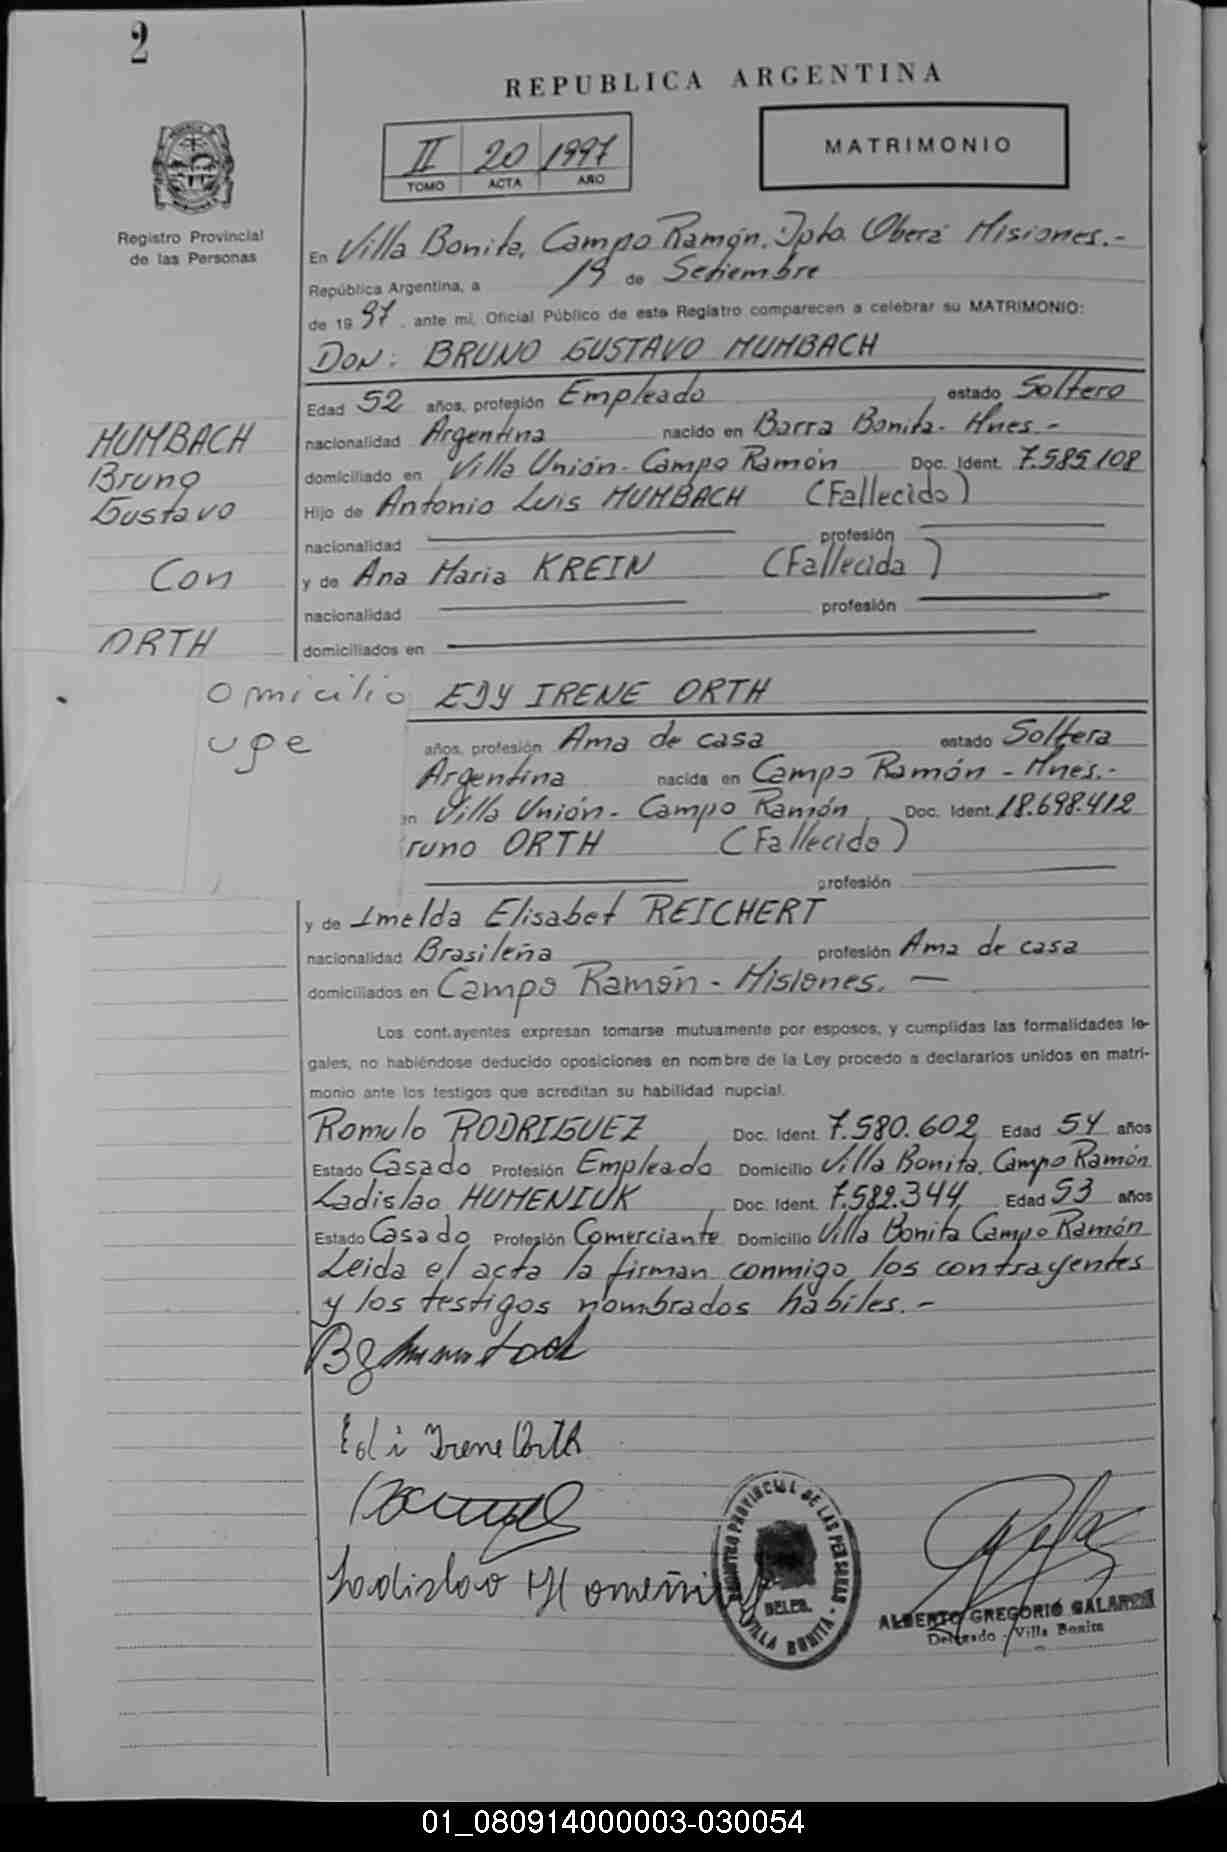 2
REPUBLICA ARGENTINA
II 20 1997
TOMO ACTA AÑO
MATRIMONIO
Registro Provincial
de las Personas
En Villa Bonita, Campo Ramón, Dpto. Oberá Misiones.-
República Argentina, a 19 de Setiembre
de 1997, ante mi, Oficial Público de este Registro comparecen a celebrar su MATRIMONIO:
DON: BRUNO GUSTAVO HUMBACH
Edad 52 años, profesión Empleado estado Soltero
nacionalidad Argentina nacido en Barra Bonita- Mnes.-
domiciliado en Villa Unión- Campo Ramón Doc. Ident. 7.585.108
Hijo de Antonio Luis HUMBACH (Fallecido)
nacionalidad profesión
y de Ana Maria KREIN (Fallecida)
nacionalidad profesión
domiciliados en
HUMBACH
Bruno
Gustavo
Con
ORTH
omicilio
upe
EDY IRENE ORTH
años, profesión Ama de casa estado Soltera
Argentina nacida en Campo Ramón - Mnes.-
en Villa Unión- Campo Ramón Doc. Ident. 18.698.412
runo ORTH (Fallecido)
profesión
y de Imelda Elisabet REICHERT
nacionalidad Brasileña profesión Ama de casa
domiciliados en Campo Ramón - Misiones. —
Los cont.ayentes expresan tomarse mutuamente por esposos, y cumplidas las formalidades le-
gales, no habiéndose deducido oposiciones en nombre de la Ley procedo a declararlos unidos en matri-
monio ante los testigos que acreditan su habilidad nupcial.
Romulo RODRIGUEZ, Doc. Ident. 7.580.602 Edad 54 años
Estado Casado Profesión Empleado Domicilio Villa Bonita, Campo Ramón
Ladislao HUMENIUK, Doc. Ident. 7.582.344 Edad 53 años
Estado Casado Profesión Comerciante Domicilio Villa Bonita Campo Ramón
Leida el acta la firman conmigo los contrayentes
y los testigos nombrados habiles.-
Edi Irene Orth
Ladislao
REGISTRO PROVINCIAL DE LAS PERSONAS
DELEG.
VILLA BONITA
ALBERTO GREGORIO GALARZA
Delegado - Villa Bonita
01_080914000003-030054